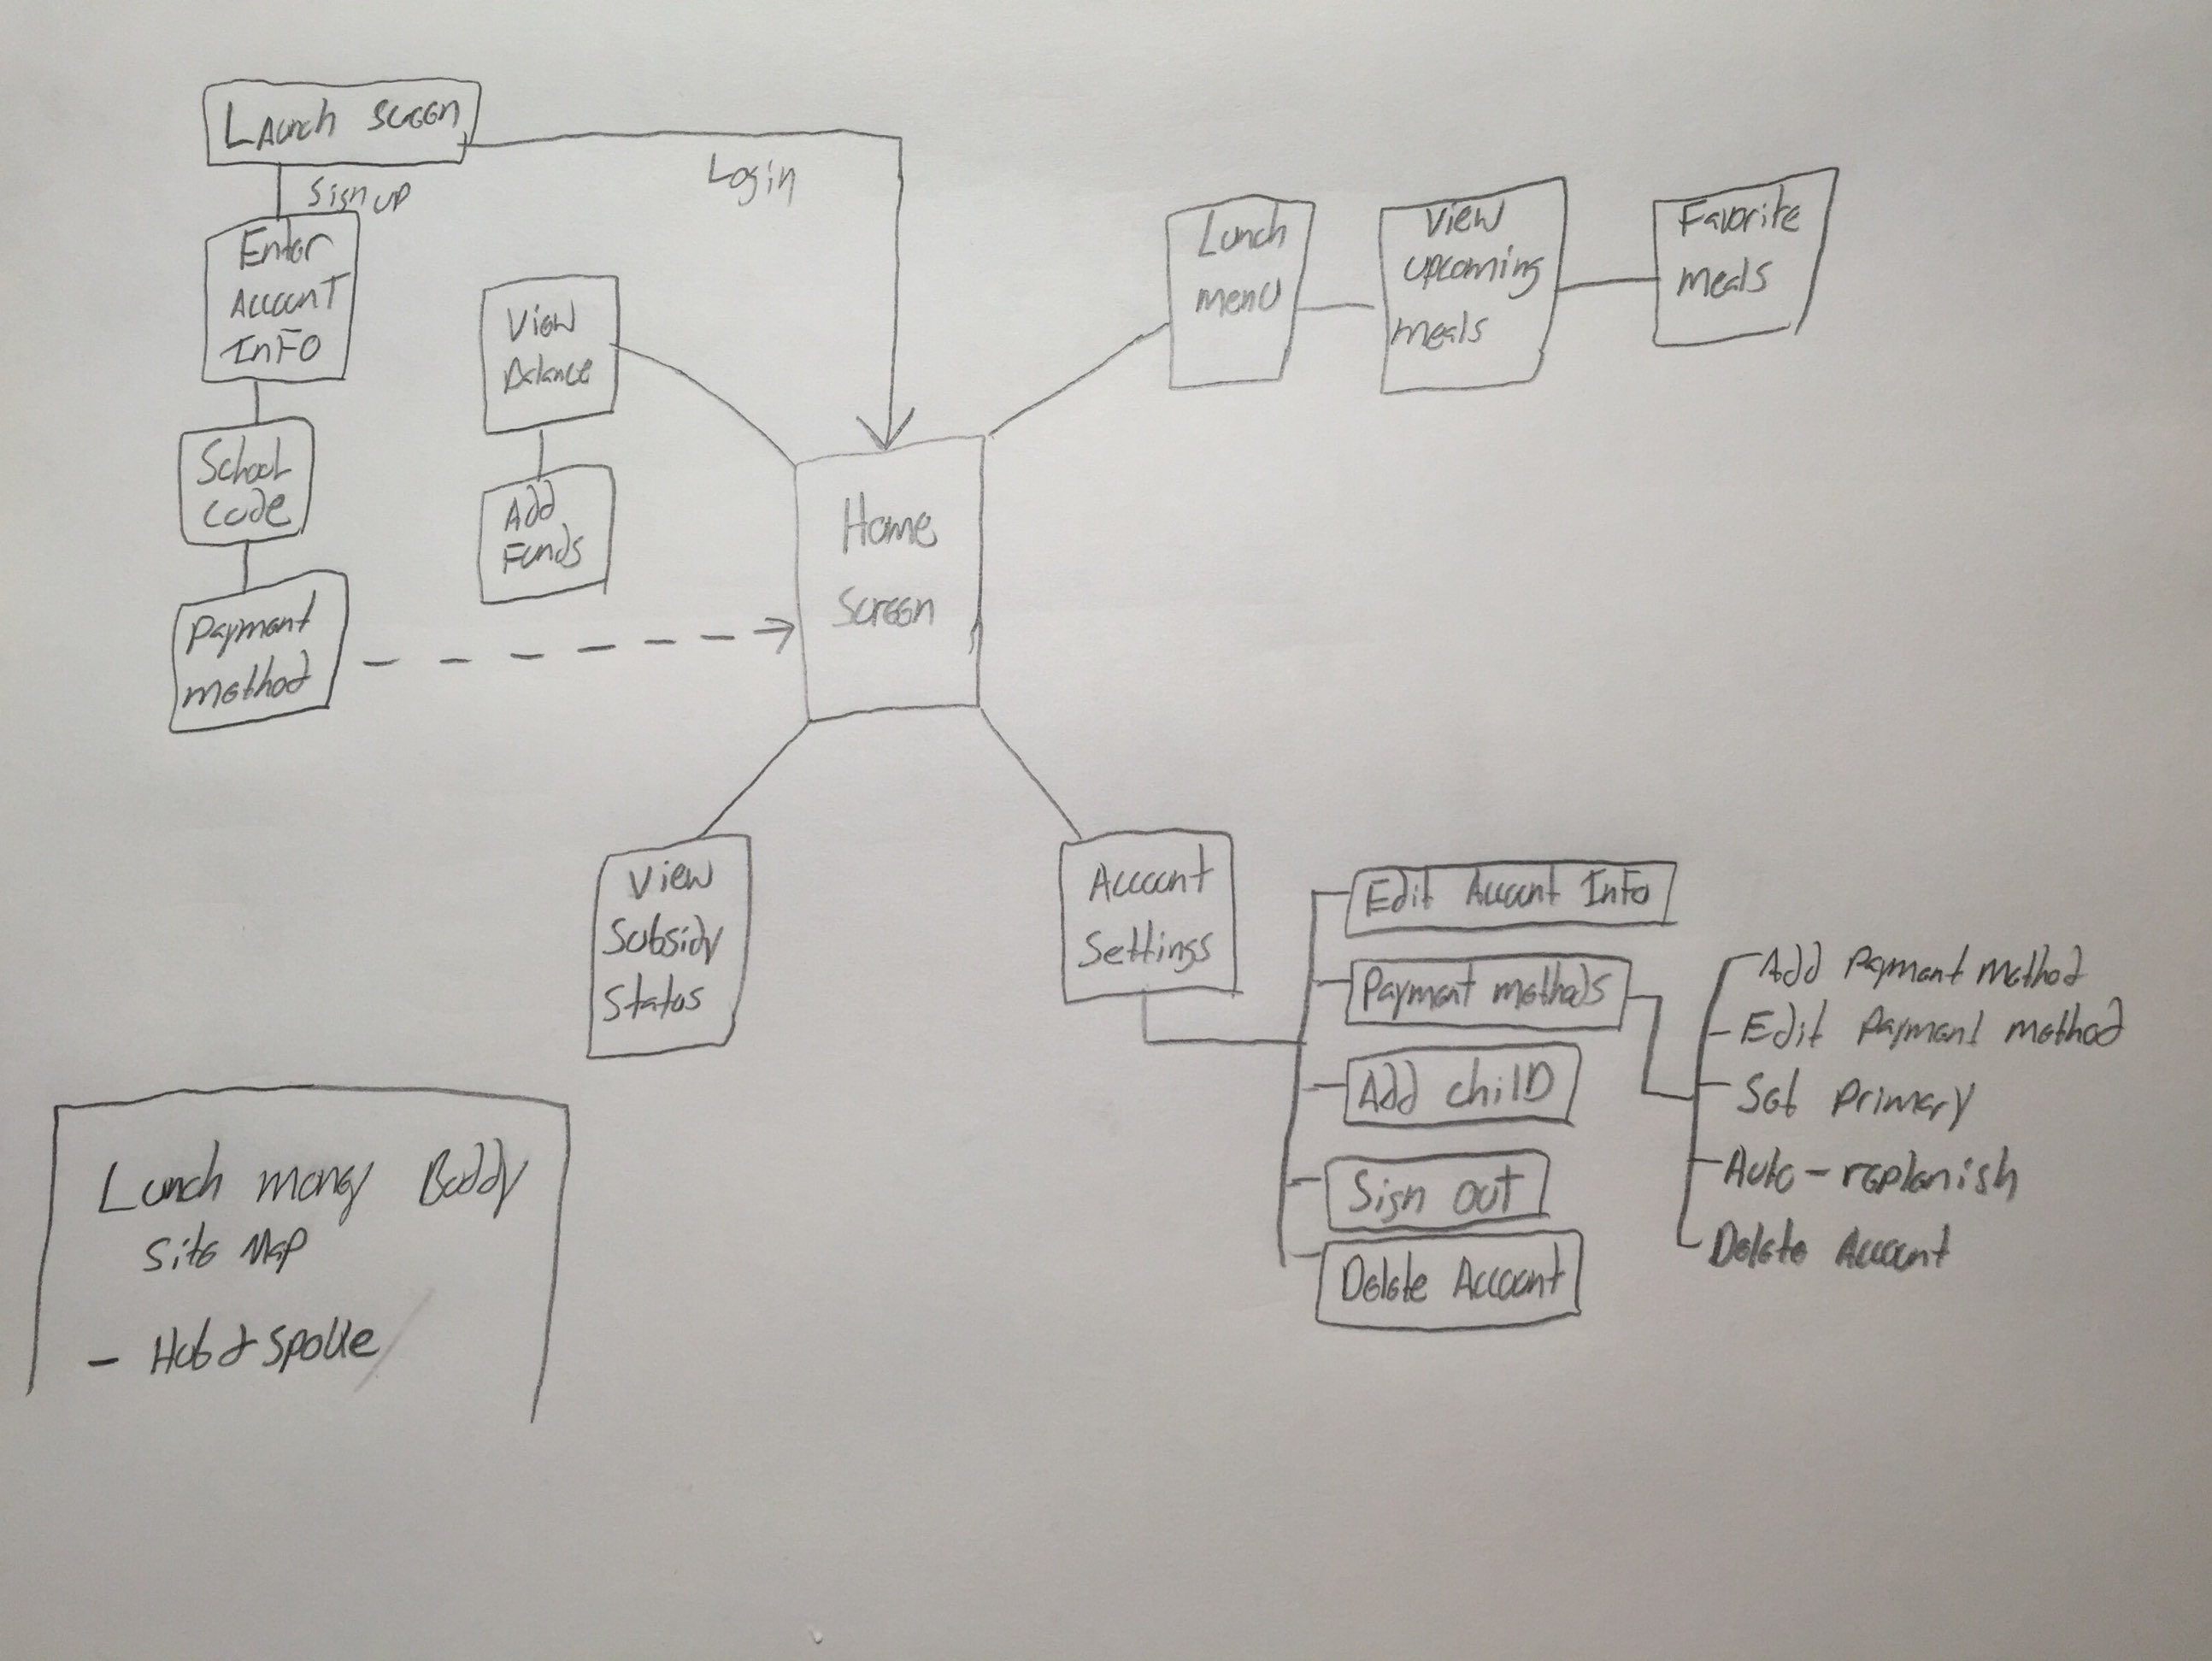 Launch screen
Sign up
Login
Enter
Account
Info
School
code
Payment
method
View
Balance
Add
Funds
Home
Screen
Lunch
menu
View
upcoming
meals
Favorite
meals
View
Subsidy
Status
Account
Settings
Edit Account Info
Payment methods
Add child
Sign out
Delete Account
Add Payment method
Edit Payment method
Set Primary
Auto-replenish
Delete Account
Lunch money Buddy
Site Map
- Hub & Spoke